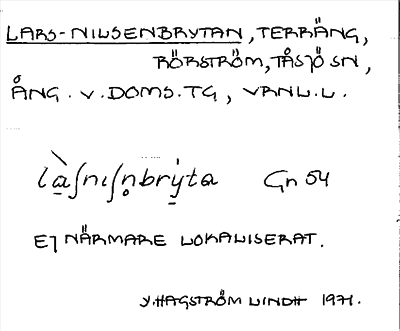 LARS-NILSENBRYTAN, TERRÄNG,
RÖRSTRÖM, TÅSJÖ SN,
ÅNG. V. DOMS. TG, VRNL.L.
là̱ʃnıʃn̥brẏ̱ta Gn 54
EJ NÄRMARE LOKALISERAT.
Y. HAGSTRÖM LINDH 1971.